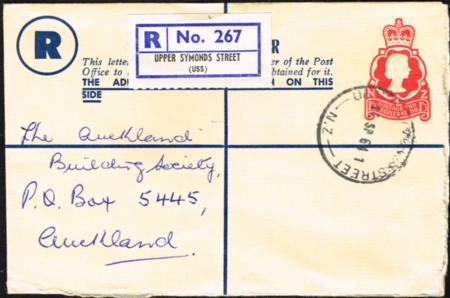 R
R No. 267
UPPER SYMONDS STREET
(USS)
R
This letter
er of the Post
Office to
obtained for it.
THE AD
ON THIS
SIDE
N Z
POSTAGE AND
REGISTRATION
STREET
N.Z
SP 64
The Auckland
Building Society,
P.O. Box 5445,
Auckland.